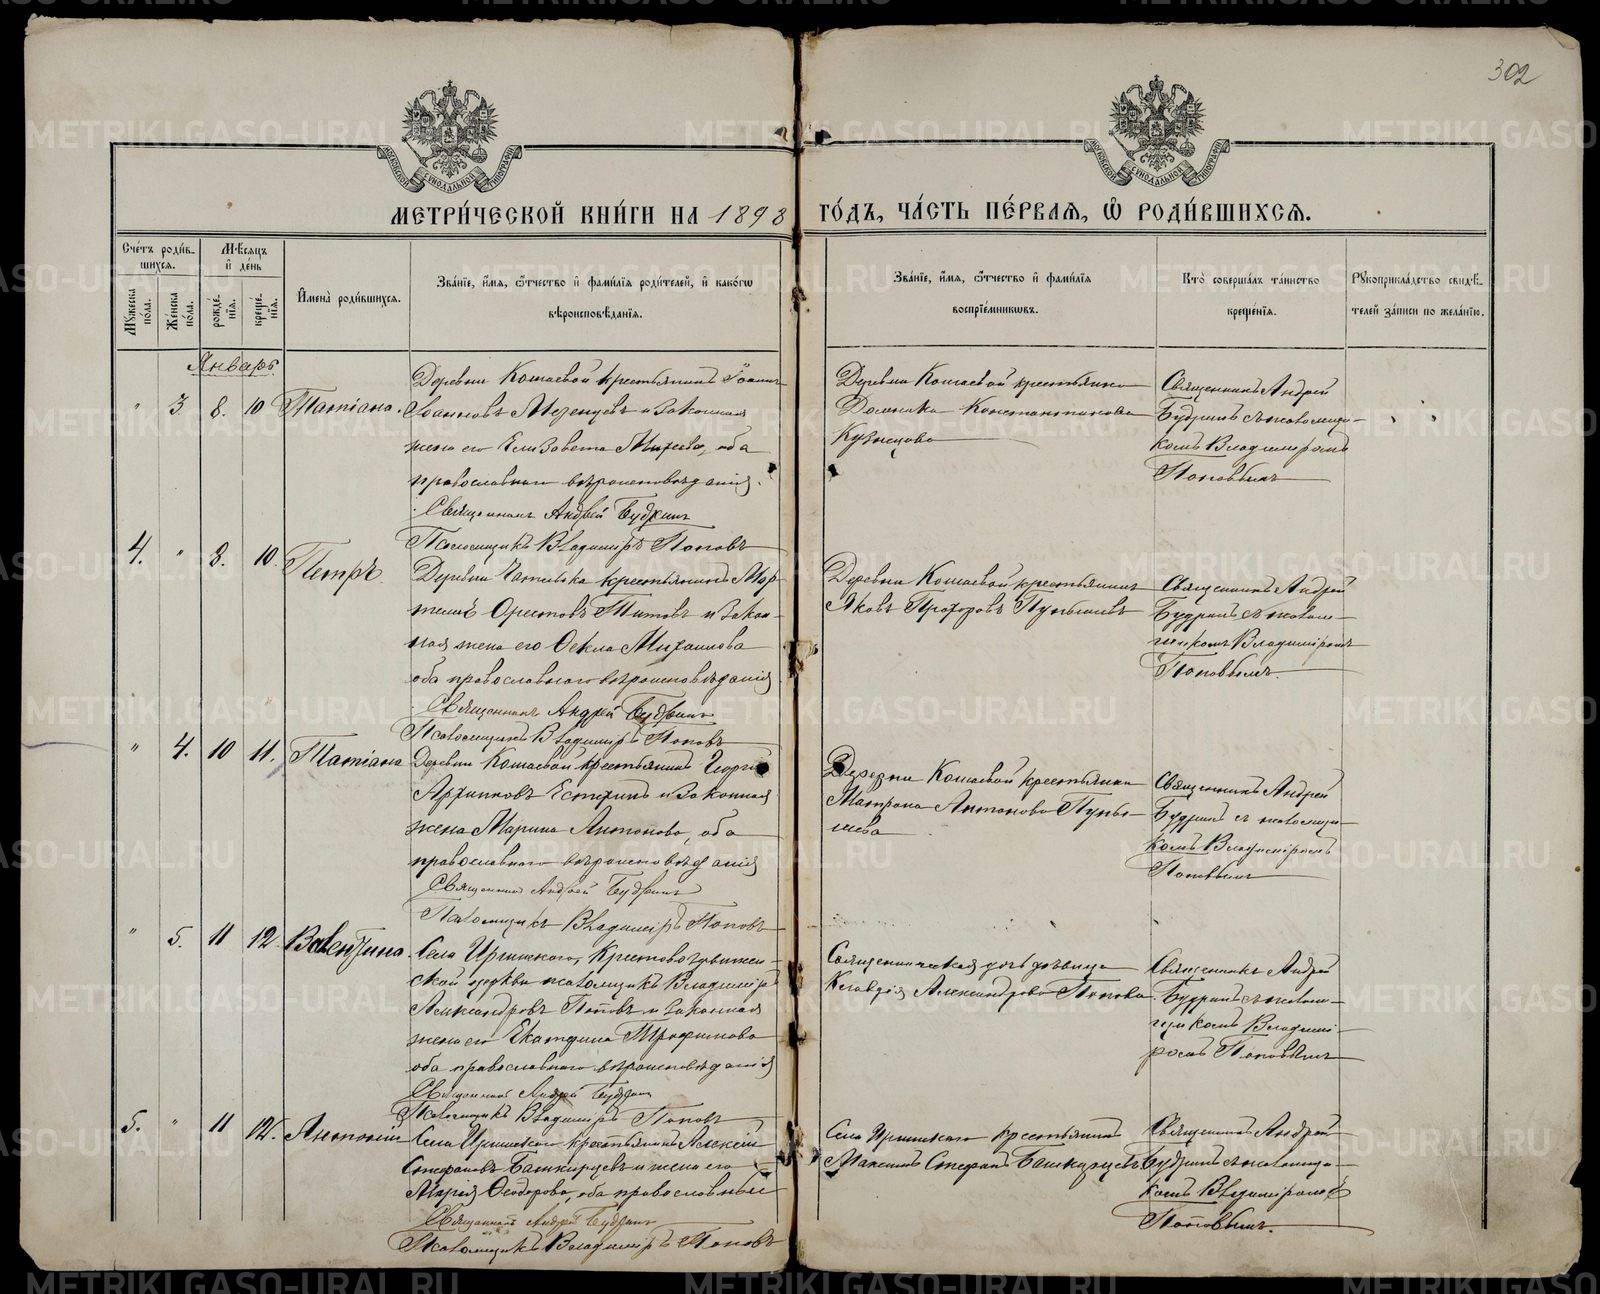 302
МЕТРИ́ЧЕСКОЙ КНИ́ГИ НА 1898 ГО́ДЪ, ЧА́СТЬ ПЕ́РВАЯ, Ѡ РОДИ́ВШИХСЯ.
Сче́тъ роди́в-
шихся.
Мѣ́сяцъ
и҆ де́нь
Мꙋ́жеска по́ла.
Же́нска по́ла.
рожде́-
нїѧ.
креще́-
нїѧ.
И҆мена̀ роди́вшихся.
Зва́нїе, и҆́мѧ, ѻ҆́тчество и҆ фами́лїѧ роди́телей, и҆ како́гѡ
вѣроисповѣ́данїѧ.
Зва́нїе, и҆́мѧ, ѻ҆́тчество и҆ фами́лїѧ
воспрїе́мникѡвъ.
Кто̀ соверша́лъ та́инство
креще́нїѧ.
Рꙋкоприкла́дство свидѣ́-
телей за́писи по жела́нїю.
Январь
" 3. 8. 10 Татіана.
Деревни Кошаевой крестьянинъ Іоаннъ
Іоанновъ Мезенцевъ и законная
жена его Елизавета Михеева, оба
православнаго вѣроисповѣданія.
Священникъ Андрей Будринъ
Псаломщикъ Владиміръ Поповъ
Деревни Кошаевой крестьянка
Домника Константинова
Кузнецова
Священникъ Андрей
Будринъ съ псаломщи-
комъ Владиміромъ
Поповымъ
4. " 8. 10. Петръ.
крестьянинъ Мар-
Орестовъ Титовъ и закон-
ная жена его Ѳекла Михаилова
оба православнаго вѣроисповѣданія
Священникъ Андрей Будринъ
Псаломщикъ Владиміръ Поповъ
Деревни Кошаевой крестьянинъ
Яковъ Прохоровъ Пупышевъ
Священникъ Андрей
Будринъ съ псалом-
щикомъ Владиміромъ
Поповымъ.
" 4. 10 11. Татіана
Деревни Кошаевой крестьянинъ Георгій
Архиповъ и законная
жена Марина Антонова, оба
православнаго вѣроисповѣданія
Священникъ Андрей Будринъ
Псаломщикъ Владиміръ Поповъ
Деревни Кошаевой крестьянка
Матрона Антонова Пупы-
шева
Священникъ Андрей
Будринъ съ псаломщи-
комъ Владиміромъ
Поповымъ
" 5. 11 12. Валентина.
Села Иргинскаго, Крестовоздвижен-
ской церкви псаломщикъ Владиміръ
Александровъ Поповъ и законная
жена его Екатерина Трофимова
оба православнаго вѣроисповѣданія
Священникъ Андрей Будринъ
Псаломщикъ Владиміръ Поповъ
Священническая дочь дѣвица
Клавдія Александрова Попова.
Священникъ Андрей
Будринъ съ псалом-
щикомъ Владимі-
ромъ Поповымъ
5. " 11 12. Антоній
Села Иргинскаго крестьянинъ Алексій
Стефановъ Башкирцевъ и жена его
Марія Ѳеодорова, оба православные
Священникъ Андрей Будринъ
Псаломщикъ Владиміръ Поповъ
Села Иргинскаго крестьянинъ
Максимъ Стефановъ Башкирцевъ
Священникъ Андрей
Будринъ съ псаломщи-
комъ Владиміромъ
Поповымъ.
METRIKI.GASO-URAL.RU